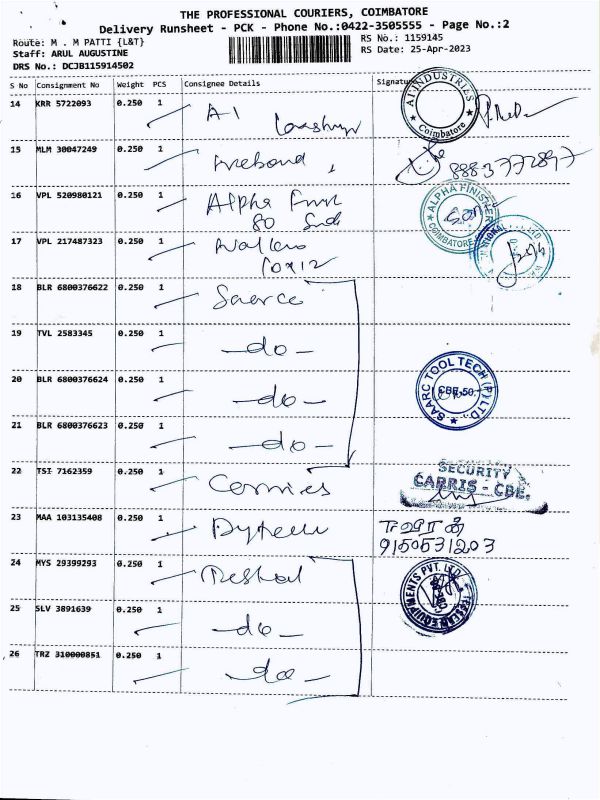 THE PROFESSIONAL COURIERS, COIMBATORE
Delivery Runsheet - PCK - Phone No.:0422-3505555 - Page No.:2
Route: M . M PATTI {L&T}
Staff: ARUL AUGUSTINE
DRS No.: DCJB115914502
RS No.: 1159145
RS Date: 25-Apr-2023
S No Consignment No Weight PCS Consignee Details Signature
14 KRR 5722093 0.250 1 A1
A1 INDUSTRIES Coimbatore
15 MLM 30047249 0.250 1
8883772897
16 VPL 520980121 0.250 1 Alpha
80
ALPHA COIMBATORE
17 VPL 217487323 0.250 1
10x12
18 BLR 6800376622 0.250 1
19 TVL 2583345 0.250 1 -do-
20 BLR 6800376624 0.250 1 -do-
SAARC TOOL TECH (P) LTD. CBE-50.
21 BLR 6800376623 0.250 1 -do-
22 TSI 7162359 0.250 1
SECURITY
CARRIS - CBE.
23 MAA 103135408 0.250 1
9150531203
24 MYS 29399293 0.250 1
EQUIPMENTS PVT. LTD
25 SLV 3891639 0.250 1 -do-
26 TRZ 310000851 0.250 1 -do-